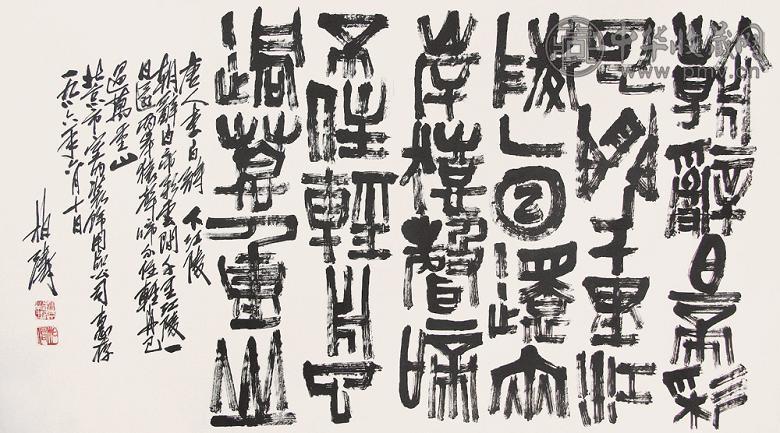 朝辭白帝彩
雲間千里江
陵一日還兩
岸猿聲啼
不住輕舟已
過萬重山
唐人李白 下江陵
朝辭白帝彩雲間千里江陵一
日還兩岸猿聲啼不住輕舟已
過萬重山
北京市室內裝飾用品公司惠存
一九八六年月十日
中华收藏网
www.pmv.cn